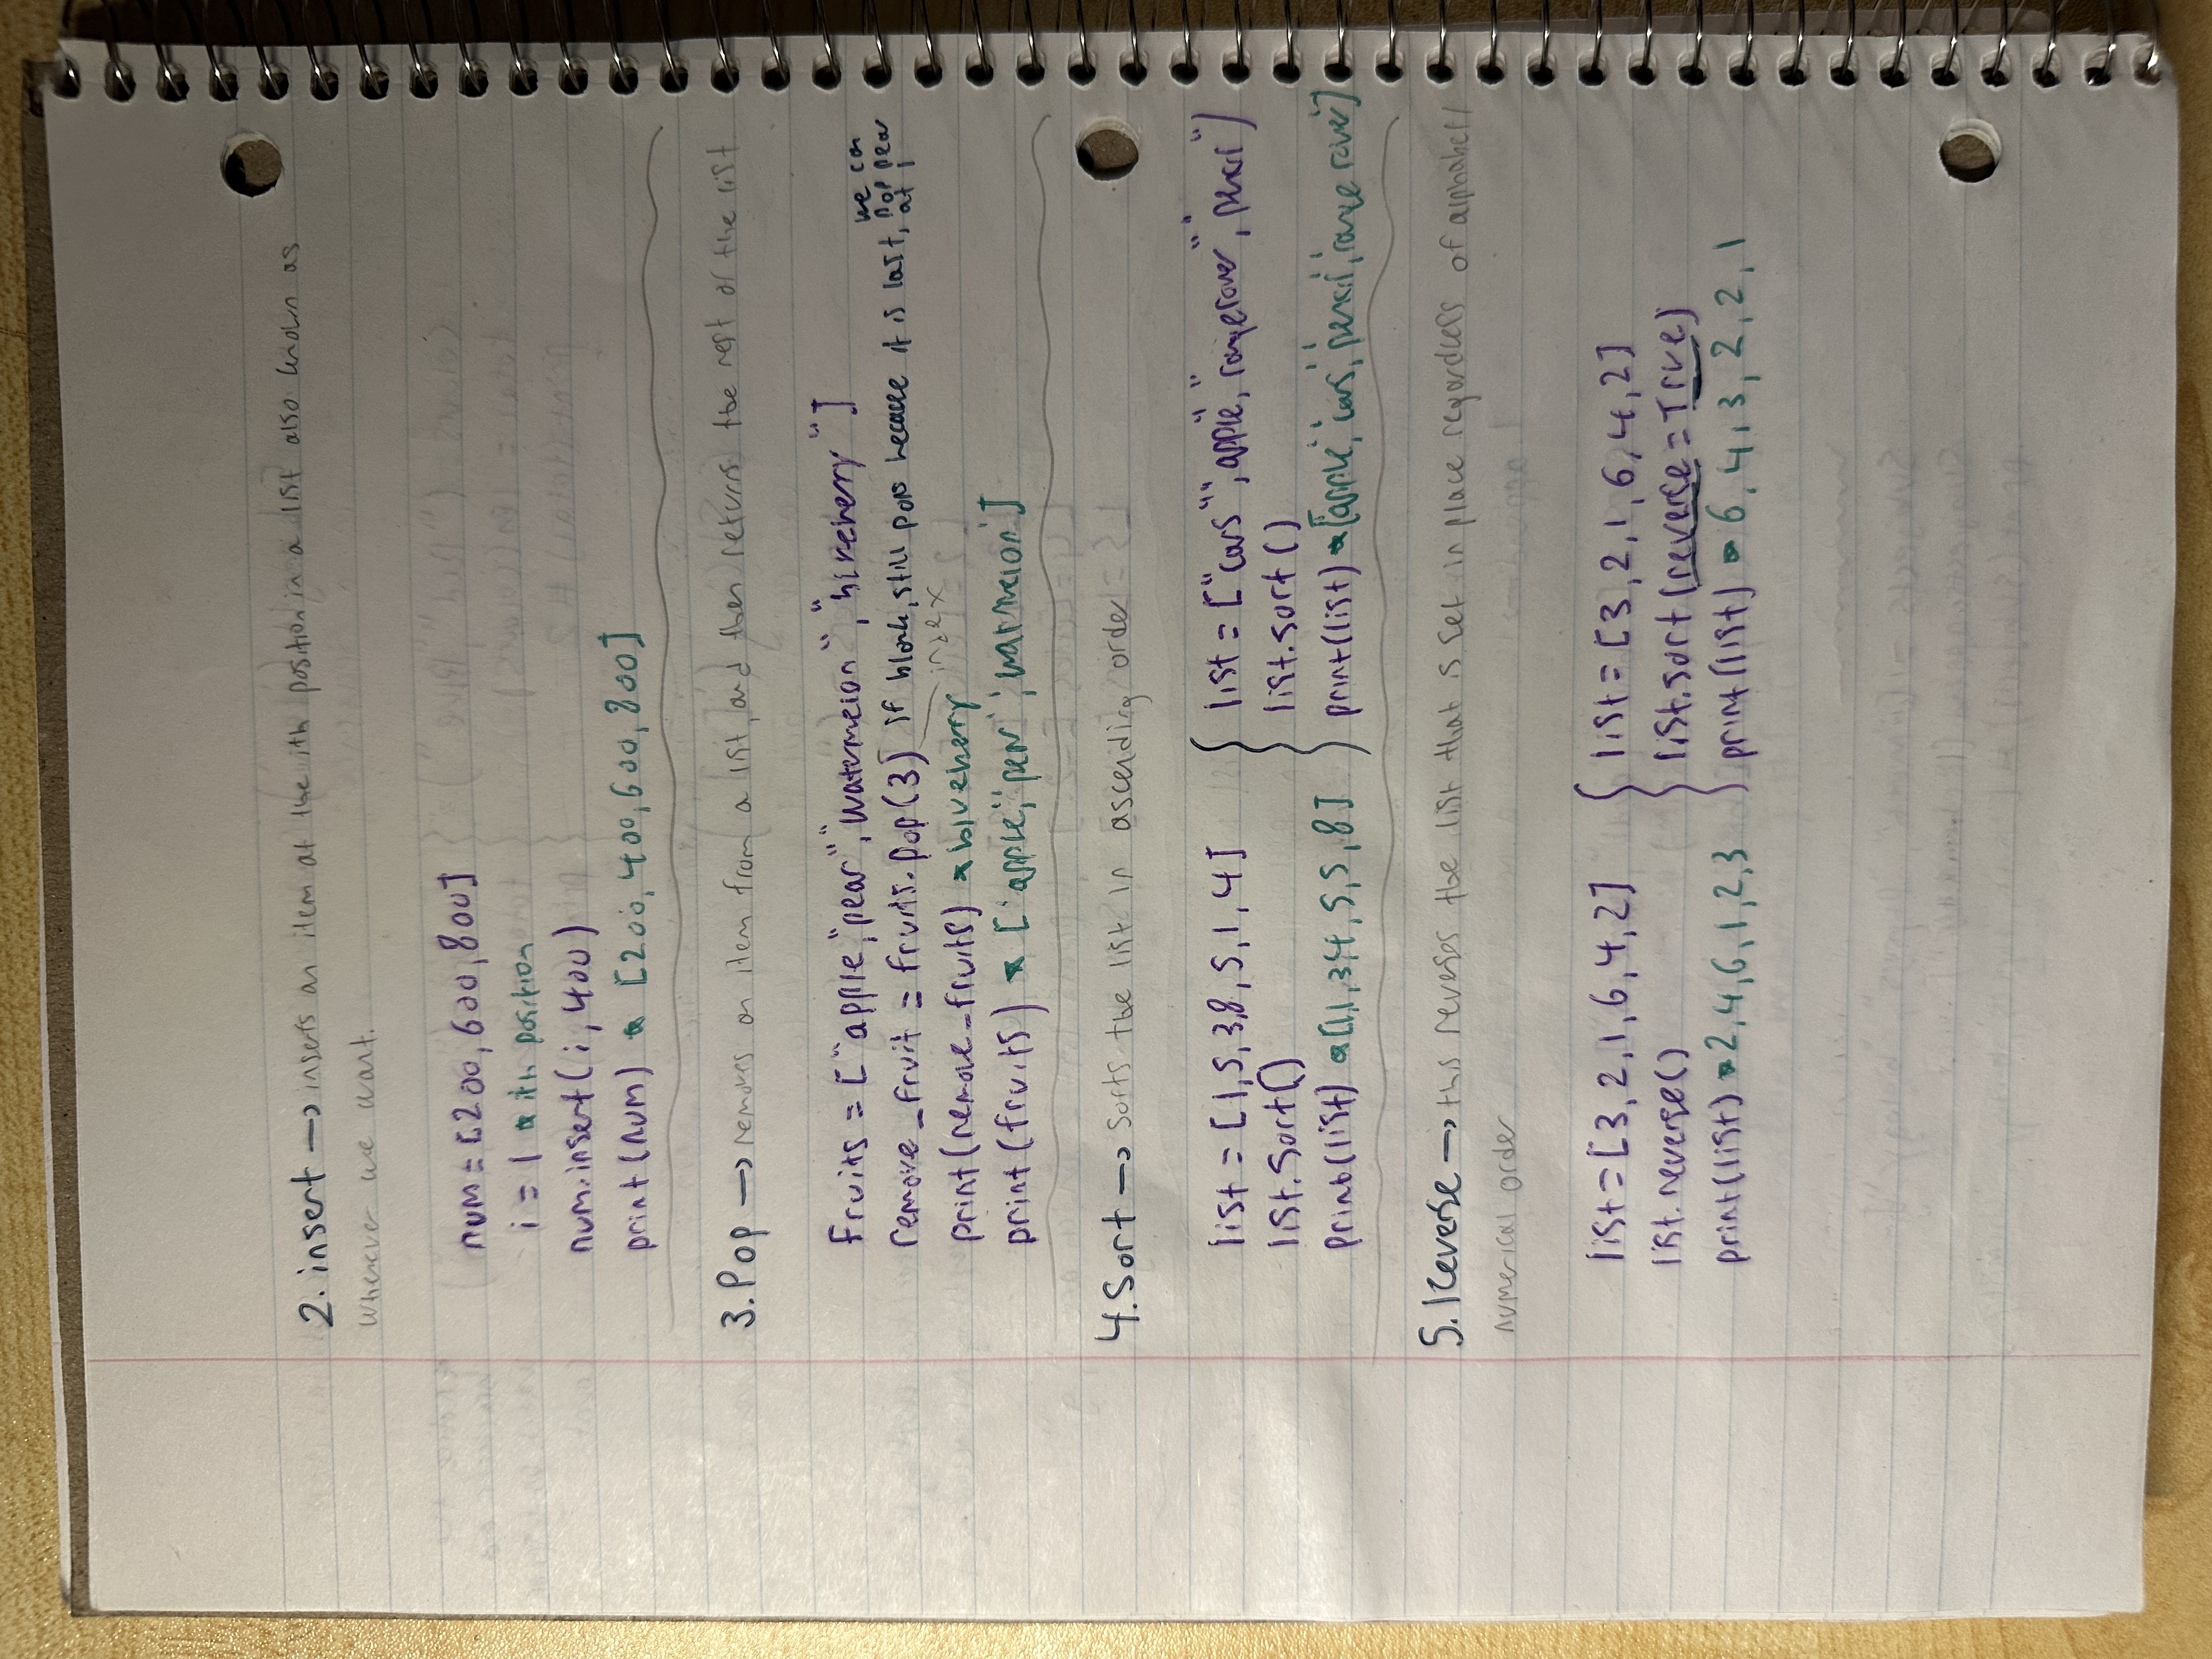 2. insert → inserts an item at the ith position in a list also known as
wherever we want.
num = [200, 600, 800]
i = 1 * ith position
num.insert(i, 400)
print(num) * [200, 400, 600, 800]
3. Pop → removes an item from a list, and then returns the rest of the list
fruits = ["apple,"pear","watermelon", "blueberry"]
remove_fruit = fruits.pop(3) if blank, still pops because it is last, we can pop pear at 1
index
print(remove_fruits) * blueberry
print(fruits) * ['apple,'pear','watmelon']
4. Sort → Sorts the list in ascending order
list = [1,5,3,8,5,1,4]
list.sort()
print(list) * [1,1,3,4,5,5,8]
list = ["cars","apple","rangerover","pencil")
list.sort()
print(list) * [apple,'cars','pencil','range rover']
5. Reverse → this reverses the list that is set in place regardless of alphabet/
numerical order
list = [3, 2, 1, 6, 4, 2]
list.reverse()
print(list) * 2, 4, 6, 1, 2, 3
list = [3, 2, 1, 6, 4, 2]
list.sort(reverse = True)
print(list) * 6, 4, 3, 2, 2, 1